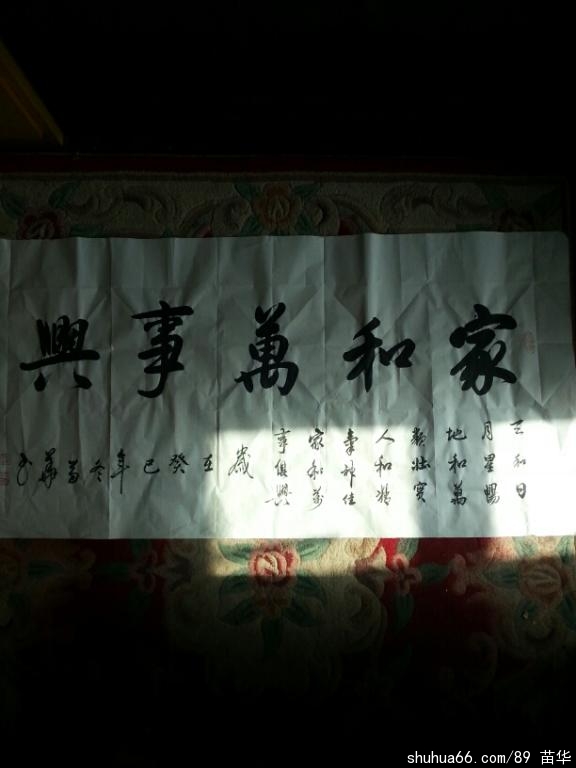 家和萬事興
天和日
月星暢
地和萬
類壯實
人和精
氣神佳
家和萬
事俱興
歲在癸巳年冬苗華书
shuhua66.com/89 苗华